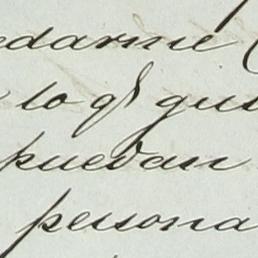 edarme
lo qe gus
puedan
persona